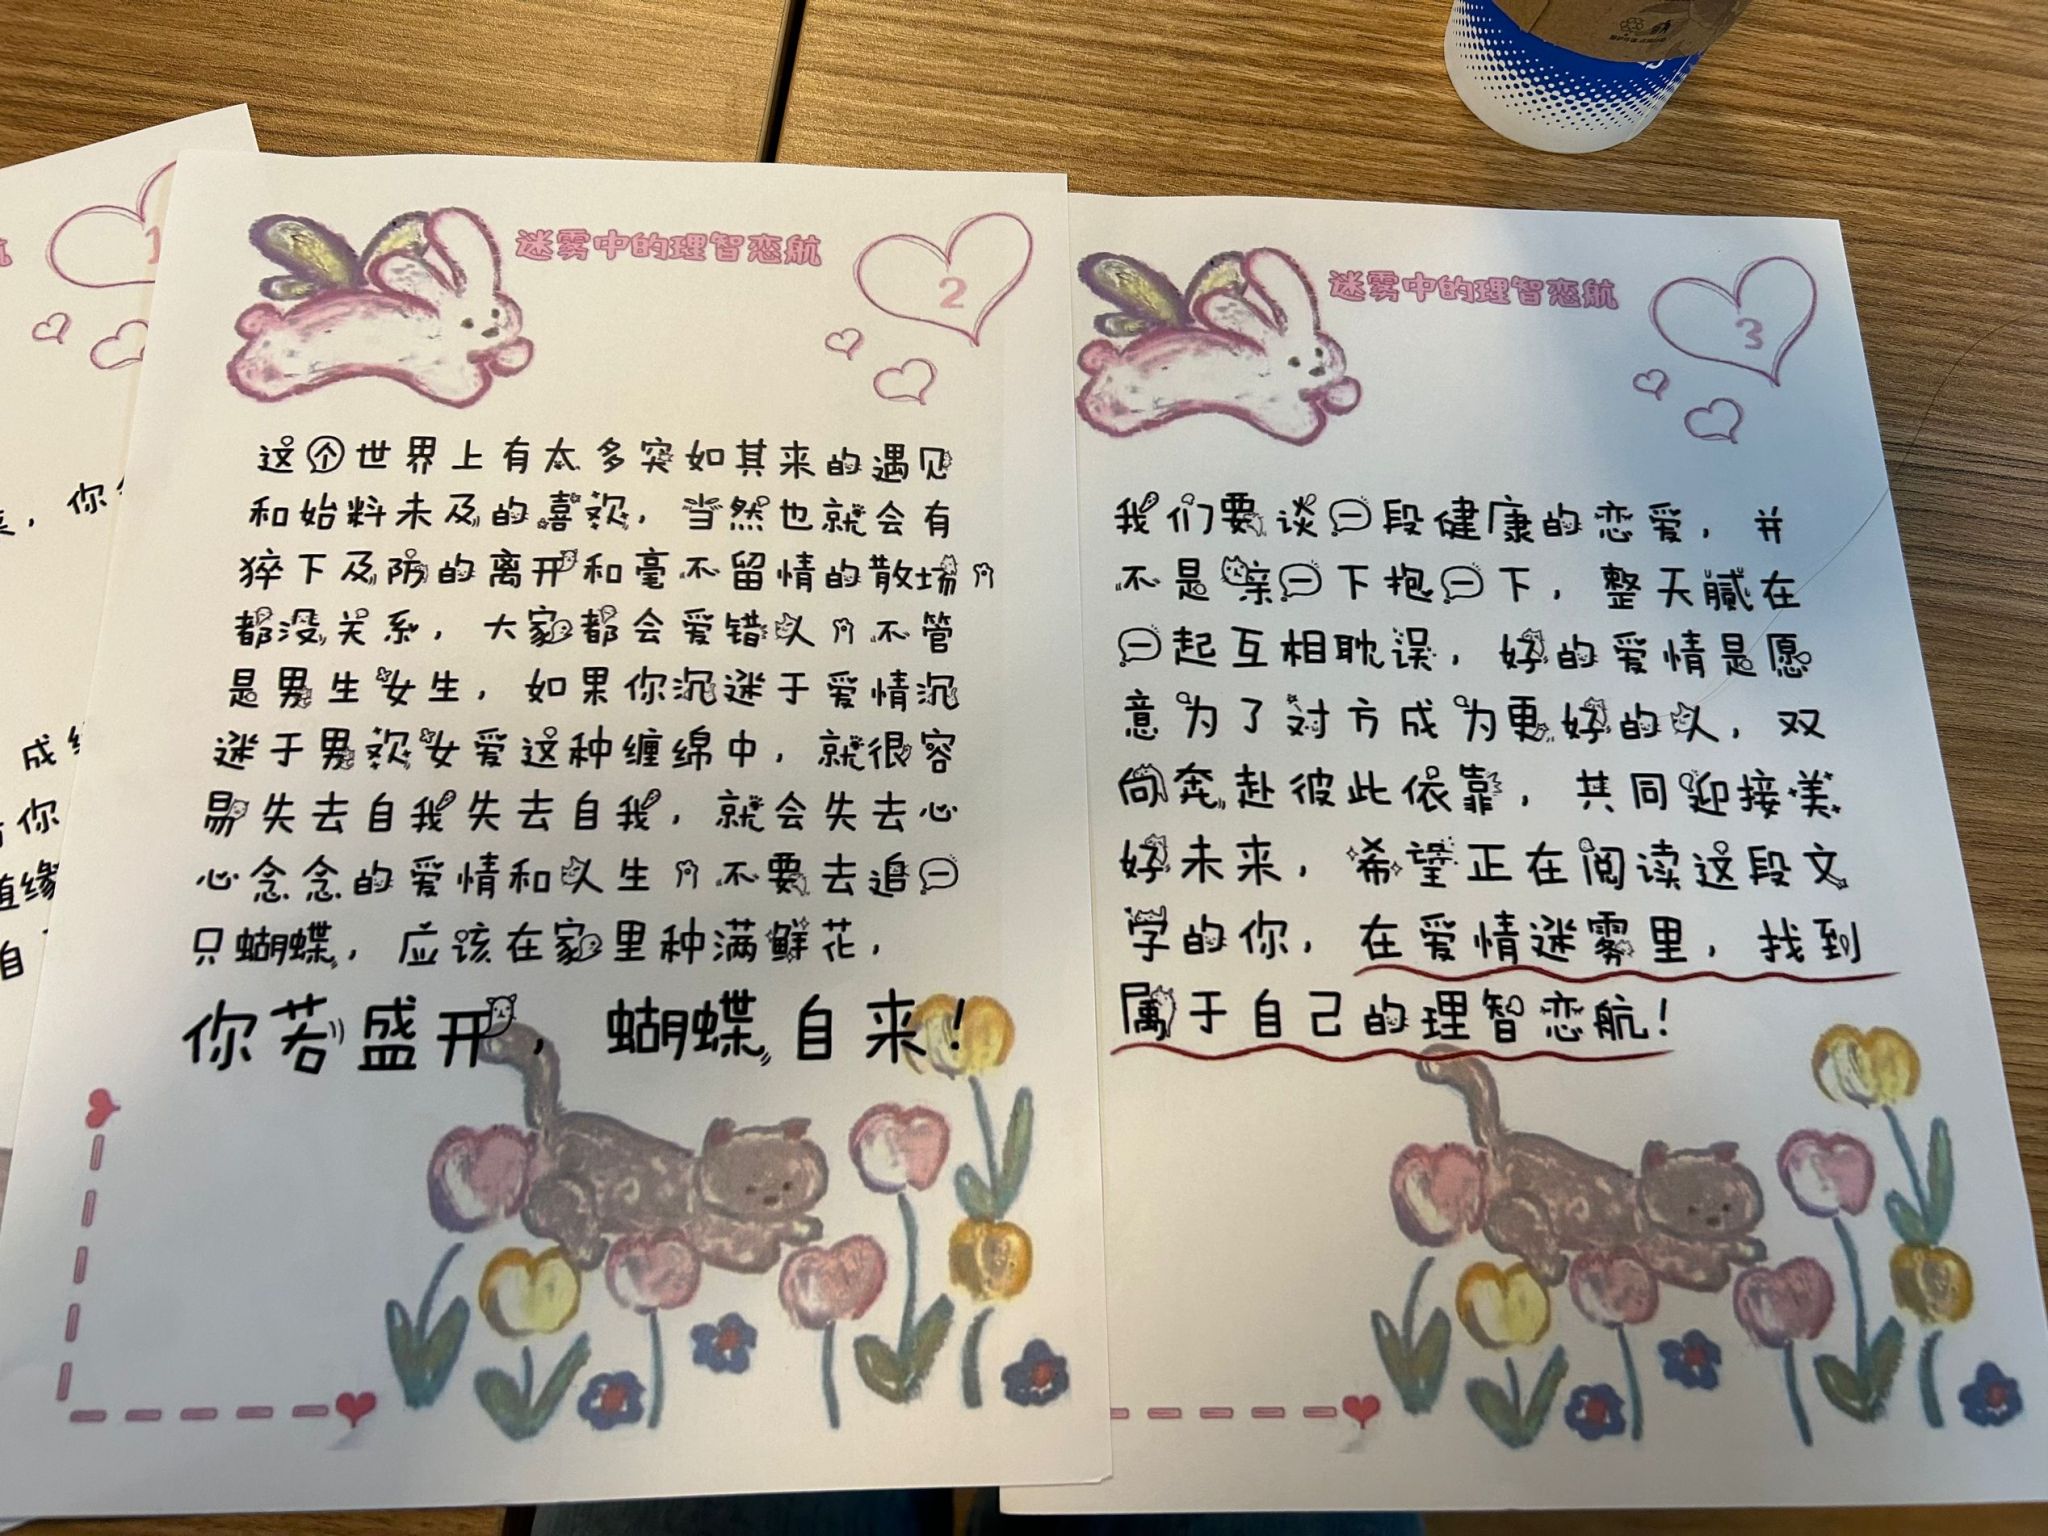 1
，你
成
你
随缘
自
迷雾中的理智恋航
2
这个世界上有太多突如其来的遇见
和始料未及的喜欢，当然也就会有
猝下及防的离开和毫不留情的散场
都没关系，大家都会爱错人 不管
是男生女生，如果你沉迷于爱情沉
迷于男欢女爱这种缠绵中，就很容
易失去自我失去自我，就会失去心
心念念的爱情和人生 不要去追一
只蝴蝶，应该在家里种满鲜花，
你若盛开，蝴蝶自来！
迷雾中的理智恋航
3
我们要谈一段健康的恋爱，并
不是亲一下抱一下，整天腻在
一起互相耽误，好的爱情是愿
意为了对方成为更好的人，双
向奔赴彼此依靠，共同迎接美
好未来，希望正在阅读这段文
字的你，在爱情迷雾里，找到
属于自己的理智恋航！